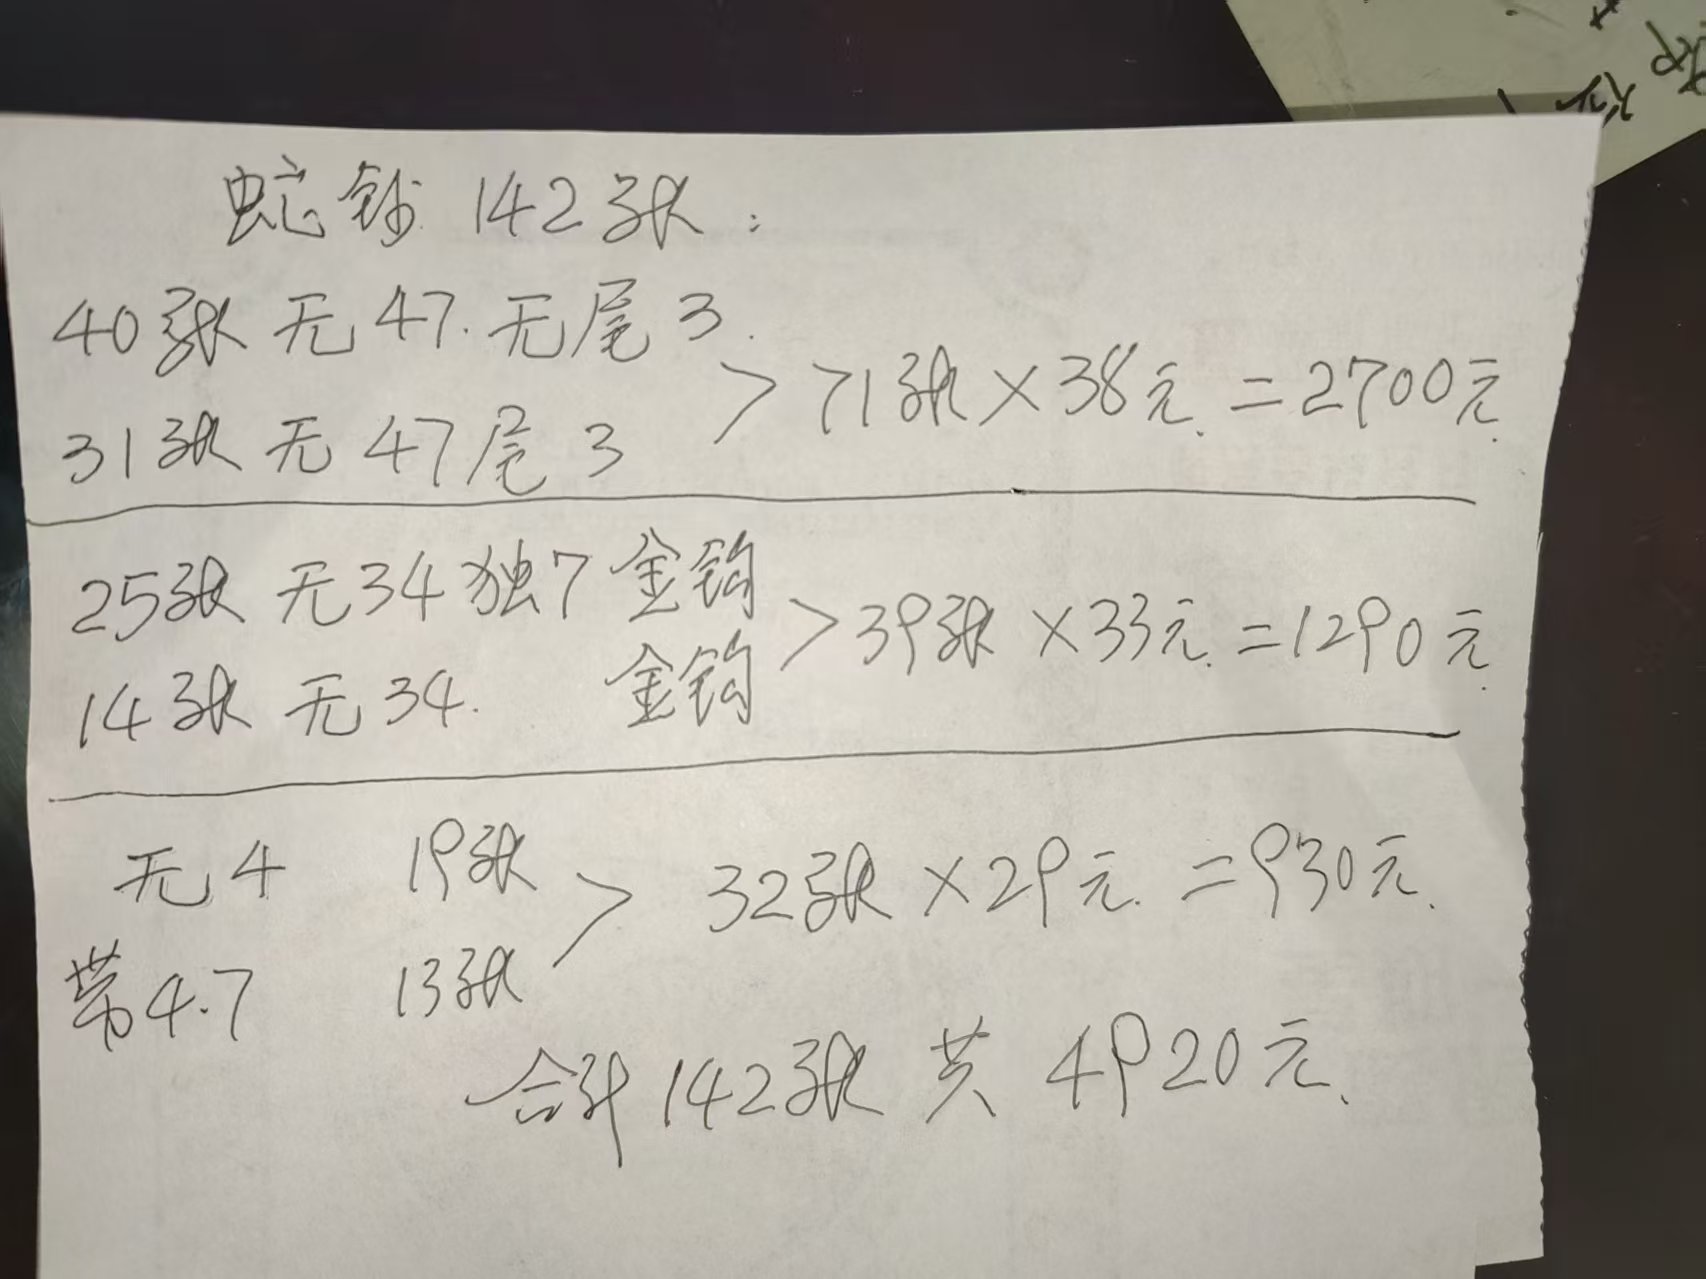 蛇钞 142张:
40张 无47. 无尾3.
31张 无47尾3
>71张×38元.=2700元.
25张 无34独7 金钩
14张 无34. 金钩
>39张×33元.=1290元.
无4 19张
带4.7 13张
> 32张×29元.=930元.
合计142张 共 4920元.